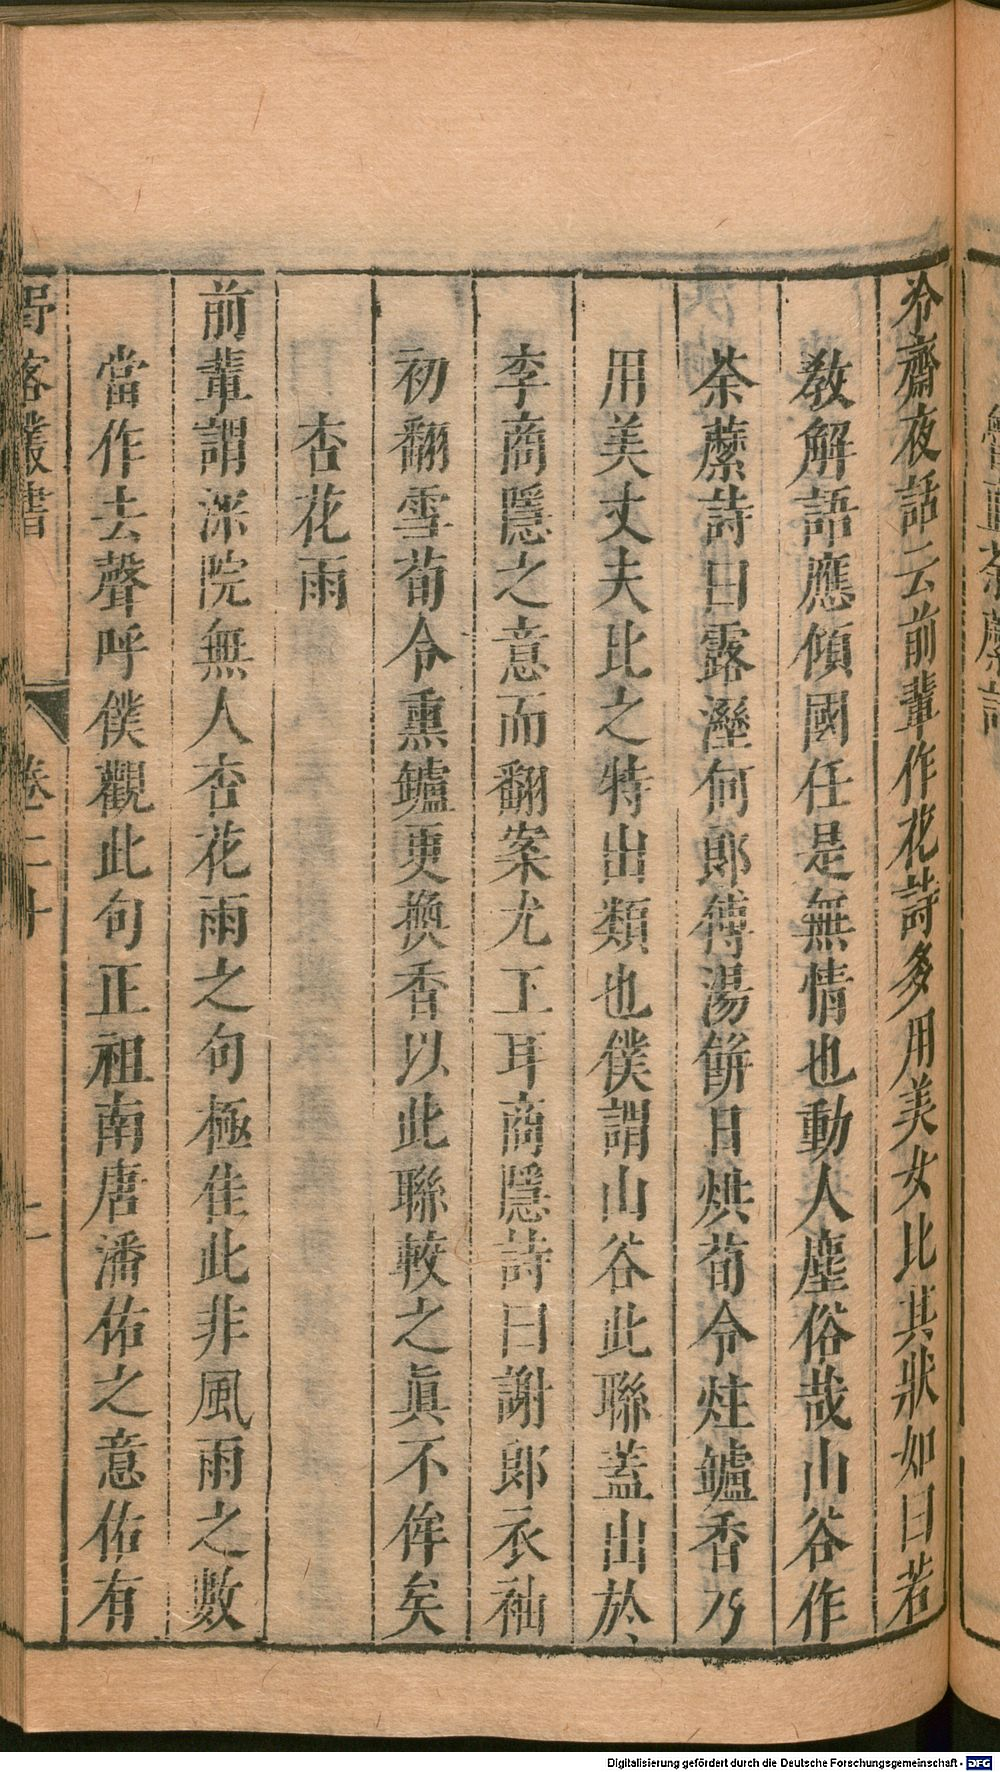 冷齋夜話云前輩作花詩多用美女比其狀如曰若
教解語應傾國任是無情也動人塵俗哉山谷作
荼蘼詩曰露溼何郎傅湯餅日烘荀令炷鑪香乃
用美丈夫比之特出類也僕謂山谷此聯蓋出於
李商隱之意而翻案尤工耳商隱詩曰謝郎衣袖
初翻雪荀令熏鑪更換香以此聯較之眞不侔矣
杏花雨
前輩謂深院無人杏花雨之句極佳此非風雨之數
當作去聲呼僕觀此句正祖南唐潘佑之意佑有
野客叢書 卷二十
Digitalisierung gefördert durch die Deutsche Forschungsgemeinschaft - DFG